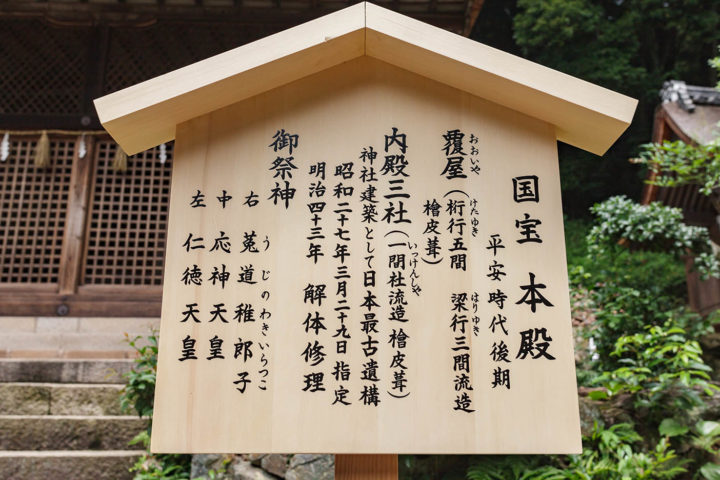 国宝 本殿
平安時代後期
覆屋(桁行五間 梁行三間流造
おおいや
けたゆき
はりゆき
檜皮葺)
内殿三社(一間社流造 檜皮葺)
いっけんしゃ
神社建築として日本最古遺構
昭和二十七年三月二十九日指定
明治四十三年 解体修理
御祭神
右 菟道稚郎子
うじのわきいらつこ
中 応神天皇
左 仁徳天皇